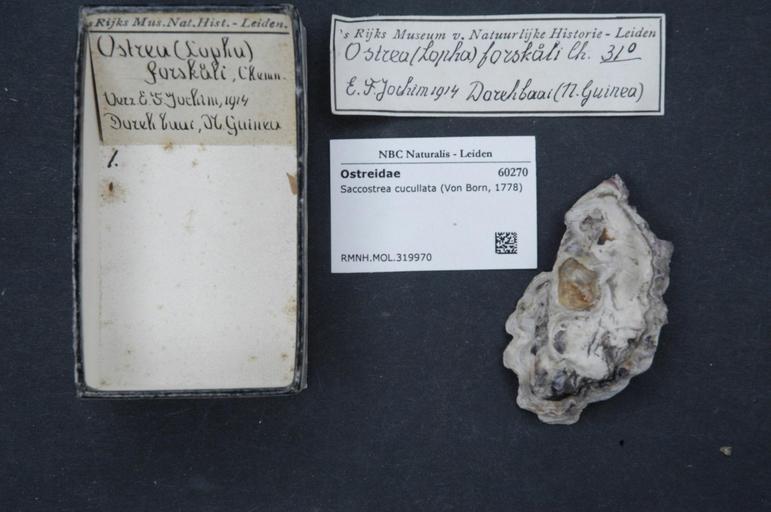 's Rijks Mus. Nat. Hist. - Leiden.
Ostrea (Lopha)
forskåli, Chemn.
Verz. E. F. Jochim, 1914
Doreh baai, N. Guinea
1.
's Rijks Museum v. Natuurlijke Historie - Leiden
Ostrea (Lopha) forskåli Ch. 31°
E. F. Jochim 1914 Dorehbaai (N. Guinea)
NBC Naturalis - Leiden
Ostreidae 60270
Saccostrea cucullata (Von Born, 1778)
RMNH.MOL.319970